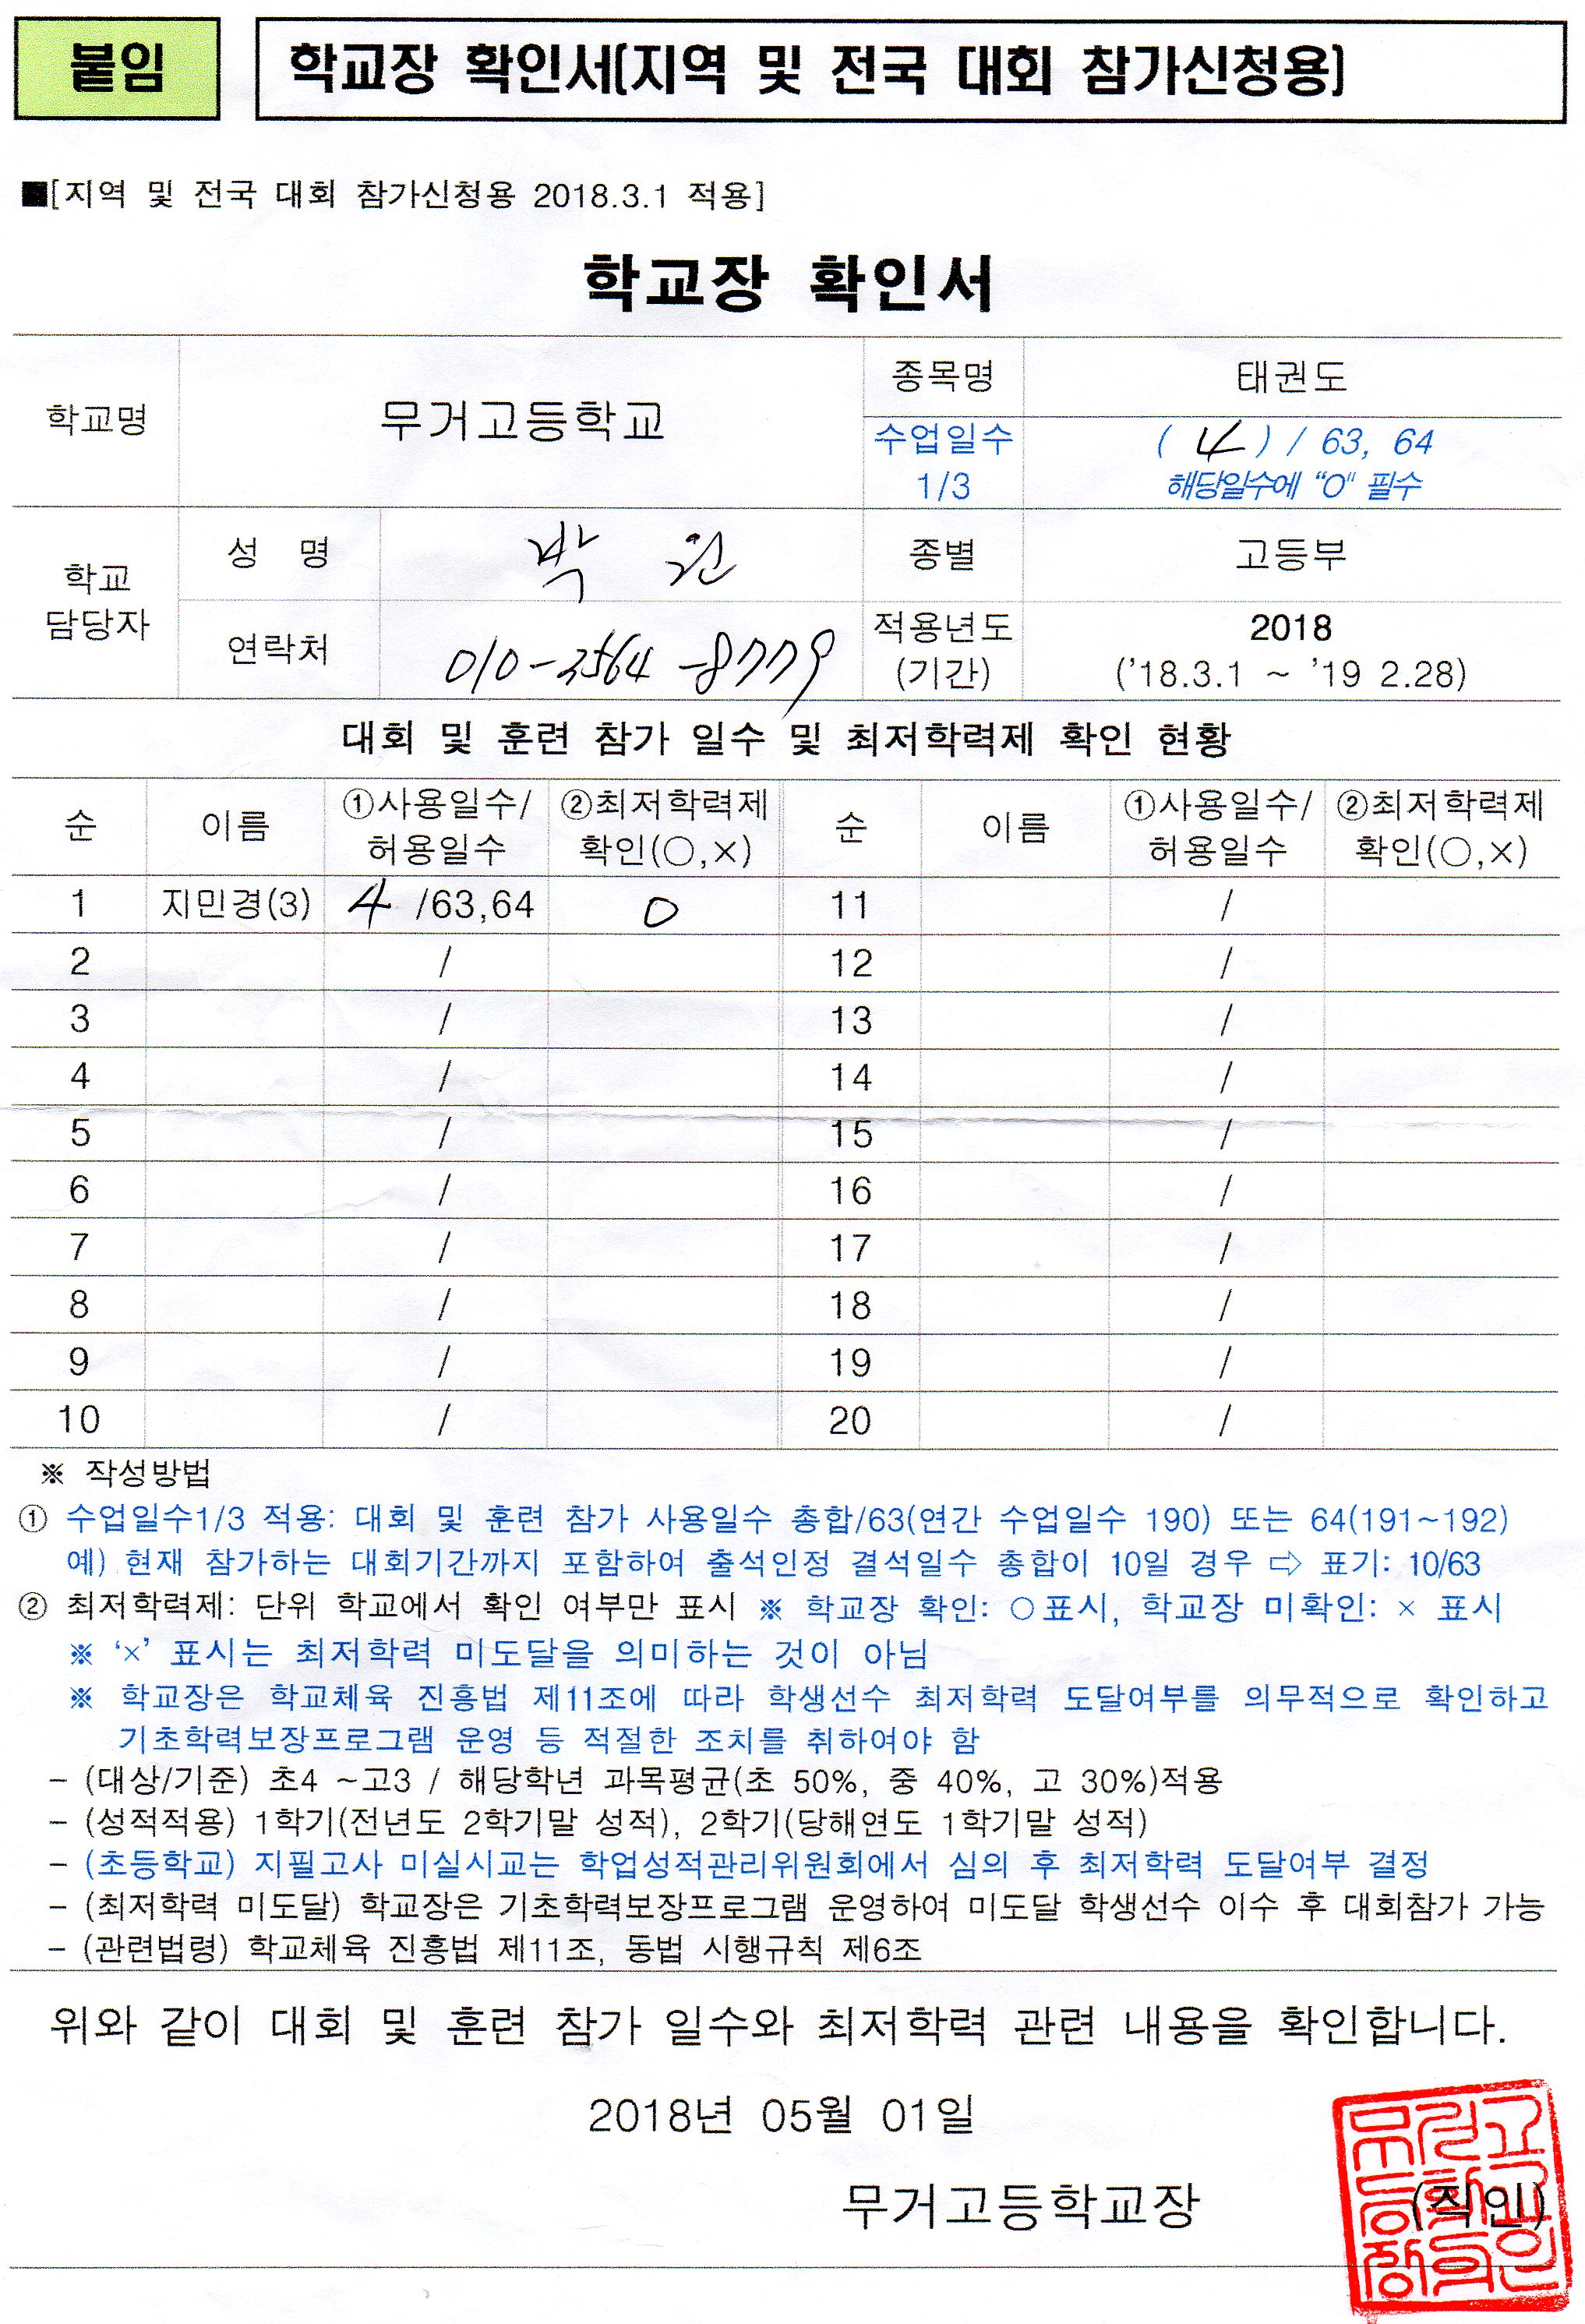 붙임
학교장 확인서(지역 및 전국 대회 참가신청용)
■[지역 및 전국 대회 참가신청용 2018.3.1 적용]
학교장 확인서
학교명 무거고등학교 종목명 태권도
수업일수 1/3 ( 4 ) / 63, 64
해당일수에 “O" 필수
학교 담당자 성 명 박 원 종별 고등부
연락처 010-3564-8779 적용년도 (기간) 2018
('18.3.1 ~ '19 2.28)
대회 및 훈련 참가 일수 및 최저학력제 확인 현황
순 이름 ①사용일수/허용일수 ②최저학력제 확인(○,×) 순 이름 ①사용일수/허용일수 ②최저학력제 확인(○,×)
1 지민경(3) 4 /63,64 O 11 /
2 / 12 /
3 / 13 /
4 / 14 /
5 / 15 /
6 / 16 /
7 / 17 /
8 / 18 /
9 / 19 /
10 / 20 /
※ 작성방법
① 수업일수1/3 적용: 대회 및 훈련 참가 사용일수 총합/63(연간 수업일수 190) 또는 64(191~192)
예) 현재 참가하는 대회기간까지 포함하여 출석인정 결석일수 총합이 10일 경우 ⇨ 표기: 10/63
② 최저학력제: 단위 학교에서 확인 여부만 표시 ※ 학교장 확인: ○표시, 학교장 미확인: × 표시
※ ‘×’ 표시는 최저학력 미도달을 의미하는 것이 아님
※ 학교장은 학교체육 진흥법 제11조에 따라 학생선수 최저학력 도달여부를 의무적으로 확인하고
기초학력보장프로그램 운영 등 적절한 조치를 취하여야 함
- (대상/기준) 초4 ~고3 / 해당학년 과목평균(초 50%, 중 40%, 고 30%)적용
- (성적적용) 1학기(전년도 2학기말 성적), 2학기(당해연도 1학기말 성적)
- (초등학교) 지필고사 미실시교는 학업성적관리위원회에서 심의 후 최저학력 도달여부 결정
- (최저학력 미도달) 학교장은 기초학력보장프로그램 운영하여 미도달 학생선수 이수 후 대회참가 가능
- (관련법령) 학교체육 진흥법 제11조, 동법 시행규칙 제6조
위와 같이 대회 및 훈련 참가 일수와 최저학력 관련 내용을 확인합니다.
2018년 05월 01일
무거고등학교장 (직인)